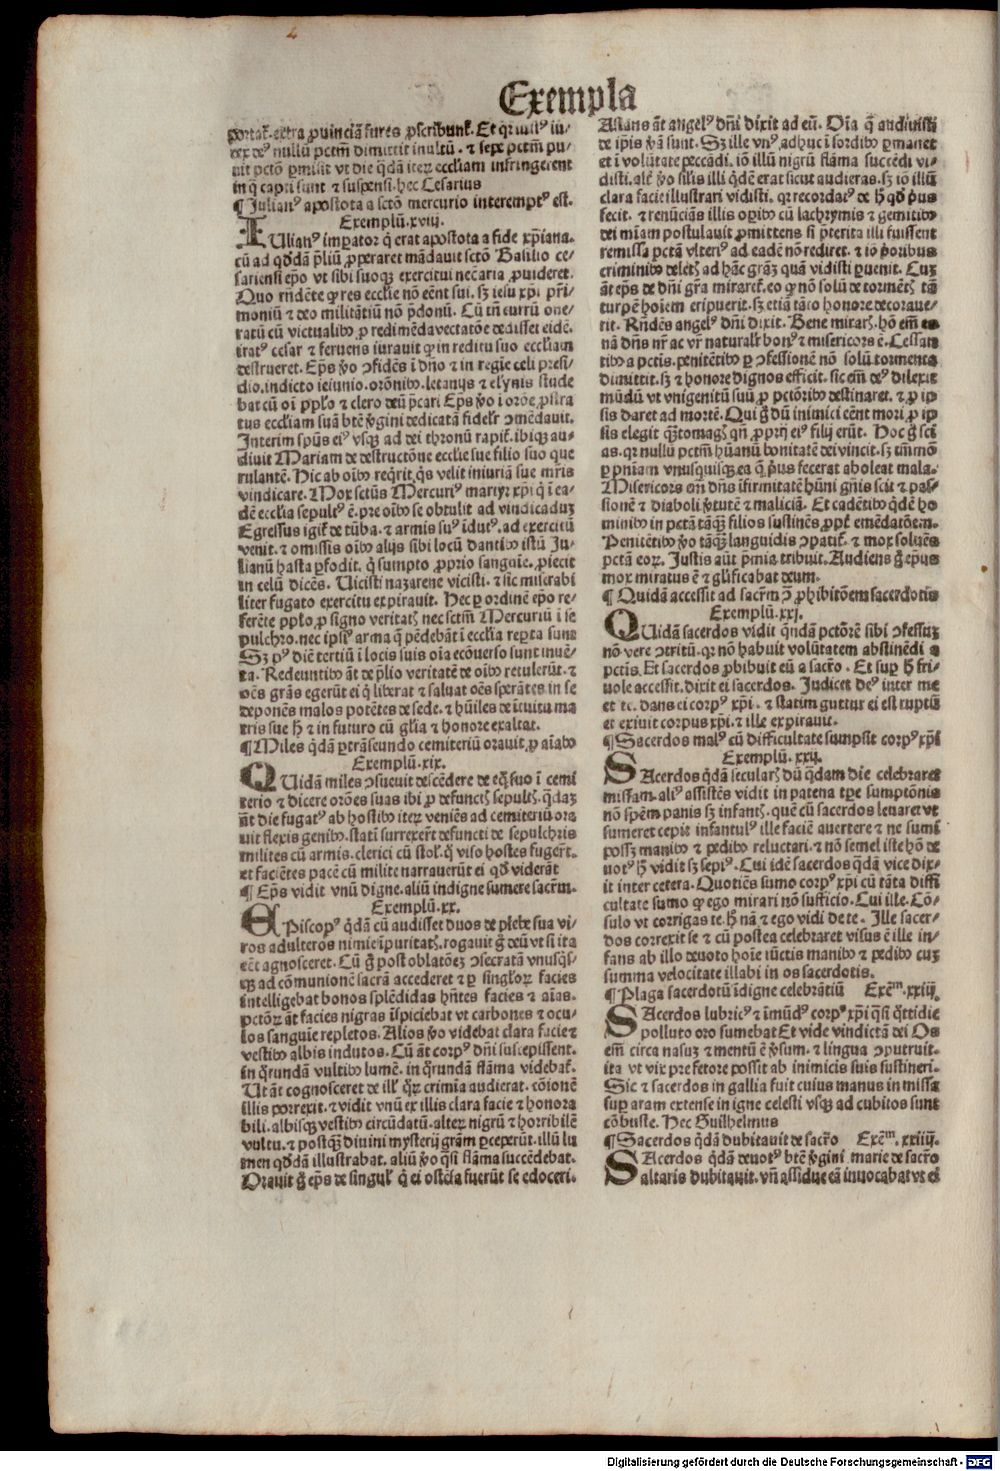 Exempla
portat̃. extra ꝓuinciã fures ꝓscribunt̃. Et qꝛ iust⁹ iu⸗
dex de⁹ nullũ pctm̃ dimittit inultũ. ⁊ sepe pctm̃ pu⸗
nit pctõ ꝑmisit vt die q̃dã iteꝝ eccliam infringerent
in q̃ capti sunt ⁊ suspensi. hec Cesarius
¶ Julian⁹ apostota a sctõ mercurio interempt⁹ est.
Exemplũ. xviij.
IUlian⁹ imꝑator q̃ erat apostota a fide xp̃iana.
cũ ad qd̃dã p̃liũ ꝓperaret mãdauit sctõ Basilio ce⸗
sariensi ep̃o vt sibi suoqꝫ exercitui nec̃aria ꝓuideret.
Quo rñdẽte ꝙ res ecclie nõ eẽnt sui. sꝫ iesu xp̃i pr̃i⸗
moniũ ⁊ deo militãtiũ nõ p̃donũ. Cũ tñ currũ one⸗
ratũ cũ victualibꝰ ꝓ redimẽda vectatõe dedisset eidẽ.
irat⁹ cesar ⁊ feruens iurauit ꝙ in reditu suo eccliam
destrueret. Ep̃s ꝟo ꝯfidẽs ĩ dño ⁊ in regĩe celi presi⸗
dio. indicto ieiunio. orõnibꝰ. letanijs ⁊ elynis stude
bat cũ oĩ pplo ⁊ clero deũ p̃cari Ep̃s ꝟo ĩ orõe ꝓstra
tus eccliam suã btẽ ꝟgini dedicatã fidelr̃ ꝯmẽdauit.
Interim spũs ei⁹ vsqꝫ ad dei thronũ rapit̃. ibiqꝫ au⸗
diuit Mariam de destructõne ecclie sue filio suo que
rulantẽ. Hic ab oĩbꝰ req̃rit q̃s velit iniuriã sue mr̃is
vindicare. Mox sctũs Mercuri⁹ martyr xp̃i q̃ ĩ ea⸗
dẽ ecclia sepult⁹ ẽ. pre oĩbꝰ se obtulit ad vindicãduꝫ
Egressus igit̃ de tũba. ⁊ armis su⁹ ĩdut⁹. ad exercitũ
venit. ⁊ omissis oĩbꝰ alijs sibi locũ dantibꝰ istũ Ju⸗
lianũ hasta ꝑfodit. q̃ sumpto ꝓprio sanguĩe. ꝓiecit
in celũ dicẽs. Vicisti nazarene vicisti. ⁊ sic miserabi
liter fugato exercitu expirauit. Hec ꝑ ordinẽ ep̃o re⸗
ferẽte pplo. ꝓ signo veritatꝭ nec sctm̃ Mercuriũ ĩ se
pulchro. nec ipsi⁹ arma q̃ pẽdebãt ĩ ecclia reꝑta sunt
Sꝫ p⁹ diẽ tertiũ ĩ locis suis oĩa ecõuerso sunt inuẽ⸗
ta. Redeuntibꝰ ãt de p̃lio veritatẽ de oĩbꝰ retulerũt. ⁊
oẽs grãs egerũt ei q̃ liberat ⁊ saluat oẽs sperãtes in se
deponẽs malos potẽtes de sede. ⁊ hũiles de ĩtuitu ma
tris sue h̃ ⁊ in futuro cũ glĩa ⁊ honore exaltat.
¶ Miles q̃dã ꝑtrãseundo cemiteriũ orauit ꝓ aĩabꝰ
Exemplũ. xix.
QUidã miles ꝯsueuit descẽdere de eq̃ suo ĩ cemi
terio ⁊ dicere orões suas ibi ꝓ defunctꝭ sepultꝭ. q̃daꝫ
ãt die fugat⁹ ab hostibꝰ iteꝝ veniẽs ad cemiteriũ ora
uit flexis genibꝰ. statĩ surrexert̃ defuncti de sepulchris
milites cũ armis. clerici cũ stol̃. q̃ viso hostes fugert̃.
et faciẽtes pacẽ cũ milite narrauerũt ei qd̃ viderãt
¶ Ep̃s vidit vnũ digne. aliũ indigne sumere sacr̃m.
Exemplũ. xx.
EPiscop⁹ q̃dã cũ audisset duos de plebe sua vi⸗
ros adulteros nimie ĩpuritatꝭ. rogauit g̃ deũ vt si ita
eẽt agnosceret. Cũ g̃ post oblatõeꝫ ꝯsecratã vnusq̃s⸗
qꝫ ad cõmunionẽ sacrã accederet ⁊ ꝑ singl̃oꝝ facies
intelligebat bonos splẽdidas hñtes facies ⁊ aĩas.
pctõꝝ ãt facies nigras ĩspiciebat vt carbones ⁊ ocu⸗
los sanguĩe repletos. Alios ꝟo videbat clara facie ⁊
vestibꝰ albis indutos. Cũ ãt corp⁹ dñi suscepissent.
in q̃rundã vultibꝰ lumẽ. in q̃rundã flãma videbat̃.
Ut ãt cognosceret de ill̃ q̃ꝝ crimĩa audierat. cõionẽ
illis porrexit. ⁊ vidit vnũ ex illis clara facie ⁊ honora
bili. albisqꝫ vestibꝰ circũdatũ. alteꝝ nigrũ ⁊ horribilẽ
vultu. ⁊ postq̃ꝫ diuini mysterij grãm ꝑceperũt. illũ lu
men qd̃dã illustrabat. aliũ ꝟo q̃si flãma succẽdebat.
Orauit g̃ ep̃s de singul̃ q̃ ei ostẽsa fuerũt se edoceri.
Astans ãt angel⁹ dñi dixit ad eũ. Oĩa q̃ audiuisti
de ip̃is ꝟa sunt. Sꝫ ille vn⁹ adhuc ĩ sordibꝰ ꝑmanet
et ĩ volũtate peccãdi. iõ illũ nigrũ flãma succẽdi vi⸗
disti. alt̃ ꝟo sil̃is illi q̃dẽ erat sicut audieras. sꝫ iõ illũ
clara facie illustrari vidisti. qꝛ recordat⁹ de h̃ qd̃ p̃us
fecit. ⁊ renũciãs illis oꝑibꝰ cũ lachrymis ⁊ gemitibꝰ
dei mĩam postulauit ꝓmittens si p̃terita illi fuissent
remissa pctã vlteri⁹ ad eadẽ nõ rediret. ⁊ iõ p̃oribus
criminibꝰ deletꝭ ad hãc grãꝫ quã vidisti ꝑuenit. Cuꝫ
ãt ep̃s de dñi gr̃a miraret̃. eo ꝙ nõ solũ de tormẽtꝭ tã
turpẽ hoĩem eripuerit. sꝫ etiã tãto honore decoraue⸗
rit. Rñdẽs angel⁹ dñi dixit. Bene mirarꝭ. hõ em̃ es
nã dñs nr̃ ac vr̃ naturalr̃ bon⁹ ⁊ misericors ẽ. Cessan
tibꝰ a pctis. penitẽtibꝰ ꝑ ꝯfessionẽ nõ solũ tormenta
dimittit. sꝫ ⁊ honore dignos efficit. sic em̃ de⁹ dilexit
mũdũ vt vnigenitũ suũ ꝓ pctõribꝰ destinaret. ⁊ ꝓ ip
sis daret ad mortẽ. Qui g̃ dũ inimici eẽnt mori ꝓ ip
sis elegit q̃ꝫtomagꝭ qñ ꝓprij ei⁹ filij erũt. Hoc g̃ sci
as. qꝛ nullũ pctm̃ hũanũ bonitatẽ dei vincit. sꝫ tm̃mõ
ꝑ pñiam vnusquisqꝫ ea q̃ p̃us fecerat aboleat mala.
Misericors em̃ dñs ĩfirmitatẽ hũni gñis scit ⁊ pas⸗
sionẽ ⁊ diaboli ꝟtutẽ ⁊ maliciã. Et cadẽtibꝰ q̃dẽ ho
minibꝰ in pctã tãqꝫ filios sustinẽs ꝓpt̃ emẽdatõem.
Penitẽtibꝰ ꝟo tãqꝫ languidis ꝯpatit̃. ⁊ mox soluẽs
pctã eoꝝ. Justis aũt p̃mia tribuit. Audiens g̃ ep̃us
mox miratus ẽ ⁊ glĩficabat deum.
¶ Quidã accessit ad sacr̃m ꝯ̃ ꝓhibitõem sacerdotis
Exemplũ. xxj.
QUidã sacerdos vidit q̃ndã pctõrẽ sibi ꝯfessuꝫ
nõ vere ꝯtritũ. qꝛ nõ habuit volũtatem abstinẽdi a
pctis. Et sacerdos ꝓhibuit eũ a sacr̃o. Et suꝑ h̃ fri⸗
uole accessit. dixit ei sacerdos. Judicet de⁹ inter me
et te. dans ei corp⁹ xp̃i. ⁊ statim guttur ei est ruptũ
et exiuit corpus xp̃i. ⁊ ille expirauit.
¶ Sacerdos mal⁹ cũ difficultate sumpsit corp⁹ xp̃i
Exemplũ. xxij.
SAcerdos q̃dã secularꝭ dũ q̃dam die celebraret
missam. ali⁹ assistẽs vidit in patena tꝑe sumptõnis
nõ spẽm panis sꝫ infantꝭ. quẽ cũ sacerdos leuaret vt
sumeret cepit infantul⁹ ille faciẽ auertere ⁊ ne sumi
possꝫ manibꝰ ⁊ pedibꝰ reluctari. ⁊ nõ semel iste hõ de
uot⁹ h̃ vidit sꝫ sepi⁹. Cui idẽ sacerdos q̃dã vice dix⸗
it inter cetera. Quotiẽs sumo corp⁹ xp̃i cũ tãta diffi
cultate sumo ꝙ ego mirari nõ sufficio. Cui ille. Cõ⸗
sulo vt corrigas te. h̃ nã ⁊ ego vidi de te. Ille sacer⸗
dos correxit se ⁊ cũ postea celebraret visus ẽ ille in⸗
fans ab illo deuoto hoĩe iũctis manibꝰ ⁊ pedibꝰ cuꝫ
summa velocitate illabi in os sacerdotis.
¶ Plaga sacerdotũ ĩdigne celebrãtiũ Exẽᵐ. xxiij.
SAcerdos lubric⁹ ⁊ ĩmũd⁹ corp⁹ xp̃i q̃si q̃ttidie
polluto oro sumebat Et vide vindictã dei Os
em̃ circa nasuꝫ ⁊ mentũ ẽ ꝟsum. ⁊ lingua ꝯputruit.
ita vt vix pre fetore possit ab inimicis suis sustineri.
Sic ⁊ sacerdos in gallia fuit cuius manus in missa
suꝑ aram extense in igne celesti vsqꝫ ad cubitos sunt
cõbuste. Hec Guilhelmus
¶ Sacerdos q̃dã dubitauit de sacr̃o Exẽᵐ. xxiiij.
SAcerdos q̃dã deuot⁹ btẽ ꝟgini marie de sacr̃o
altaris dubitauit. vñ assidue eã inuocabat vt ei
Digitalisierung gefördert durch die Deutsche Forschungsgemeinschaft - DFG